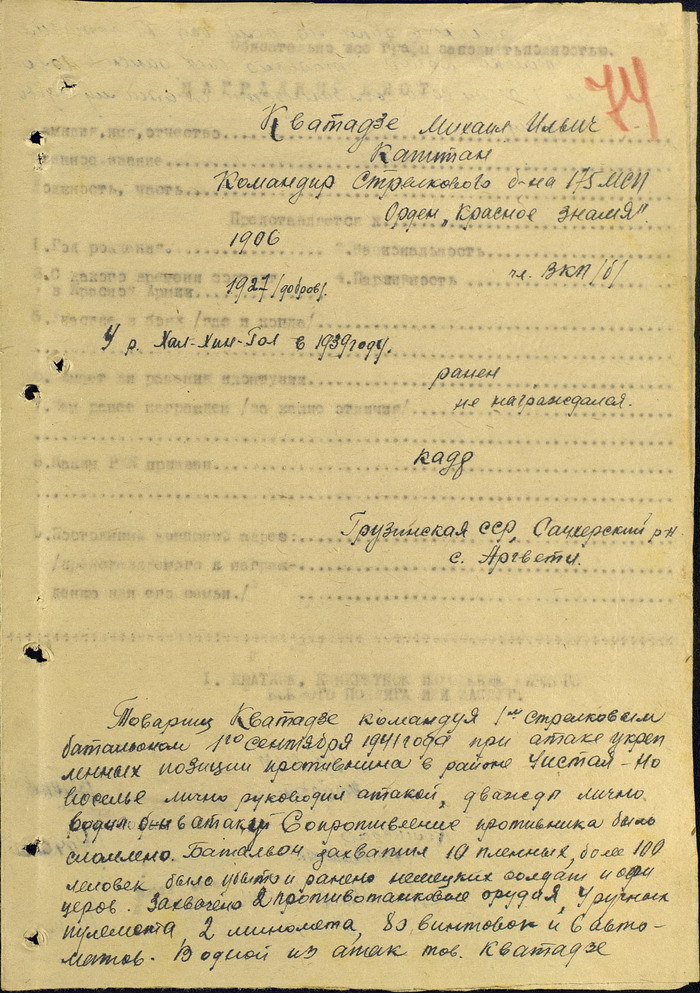 Обязательно все графы заполн
НАГРАДНОЙ ЛИСТ
74
Кватадзе Михаил Ильич
Фамилия, имя, отчество
Капитан
Военное звание
Командир Стрелкового б-на 175 МСП
Должность, часть
Представляется к
Орден „Красное знамя".
1906
1. Год рождения 2. Национальность
3. С какого времени
в Красной Армии
1927 /добров/.
4. Партийность чл. ВКП/б/
5. Участие в боях /где и когда/
У р. Хал-Хин-Гол в 1939 году.
ранен
не награждался.
7. Чем ранее награжден /за какие отличия/
8. Каким РВК призван кадр
9. Постоянный домашний адрес:
Грузинская ССР, Сачхерский р-н
с. Аргвети.
/представляемого к награж-
дению или его семьи./
I. КРАТКОЕ, КОНКРЕТНОЕ ИЗЛОЖЕНИЕ ЛИЧНОГО
БОЕВОГО ПОДВИГА ИЛИ ЗАСЛУГ.
Товарищ Кватадзе командуя 1м стрелковым
батальоном 1го сентября 1941 года при атаке укреп
ленных позиции противника в районе Чистая - Но
воселье лично руководил атакой, дважды лично
водил в атаку Сопротивление противника было
сломлено. Батальон захватил 10 пленных, более 100
человек было убито и ранено немецких солдат и офи
церов. Захвачено 2 противотанковые орудия, 4 ручных
пулемета, 2 миномета, 80 винтовок и 6 авто-
матов. В одной из атак тов. Кватадзе